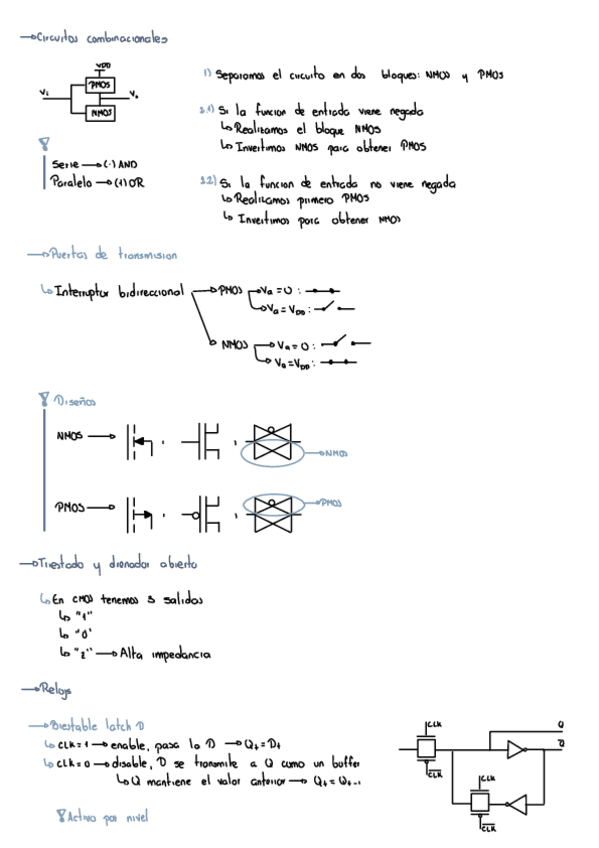 →Circuitos combinacionales
VDD
PMOS
Vi
Vo
NMOS
1) Separamos el circuito en dos bloques: NMOS y PMOS
2.1) Si la funcion de entrada viene negada
↳Realizamos el bloque NMOS
↳Invertimos NMOS para obtener PMOS
Serie →(·) AND
Paralelo →(+) OR
2.2) Si la funcion de entrada no viene negada
↳Realizamos primero PMOS
↳Invertimos para obtener NMOS
→Puertas de transmision
↳Interruptor bidireccional
→PMOS →Va = 0 :
→Va = VDD :
NMOS →Va = 0 :
→Va = VDD :
Diseños
NMOS →
→NMOS
PMOS →
→PMOS
→Triestado y drenador abierto
↳En CMOS tenemos 3 salidas
↳"1"
↳"0"
↳"z" → Alta impedancia
→Relojs
→Biestable latch D
↳CLK = 1 → enable, pasa la D → Qt = Dt
↳CLK = 0 → disable, D se transmite a Q como un buffer
↳Q mantiene el valor anterior → Qt = Qt-1
Activo por nivel
CLK
Q
Q̅
C̅L̅K̅
CLK
C̅L̅K̅